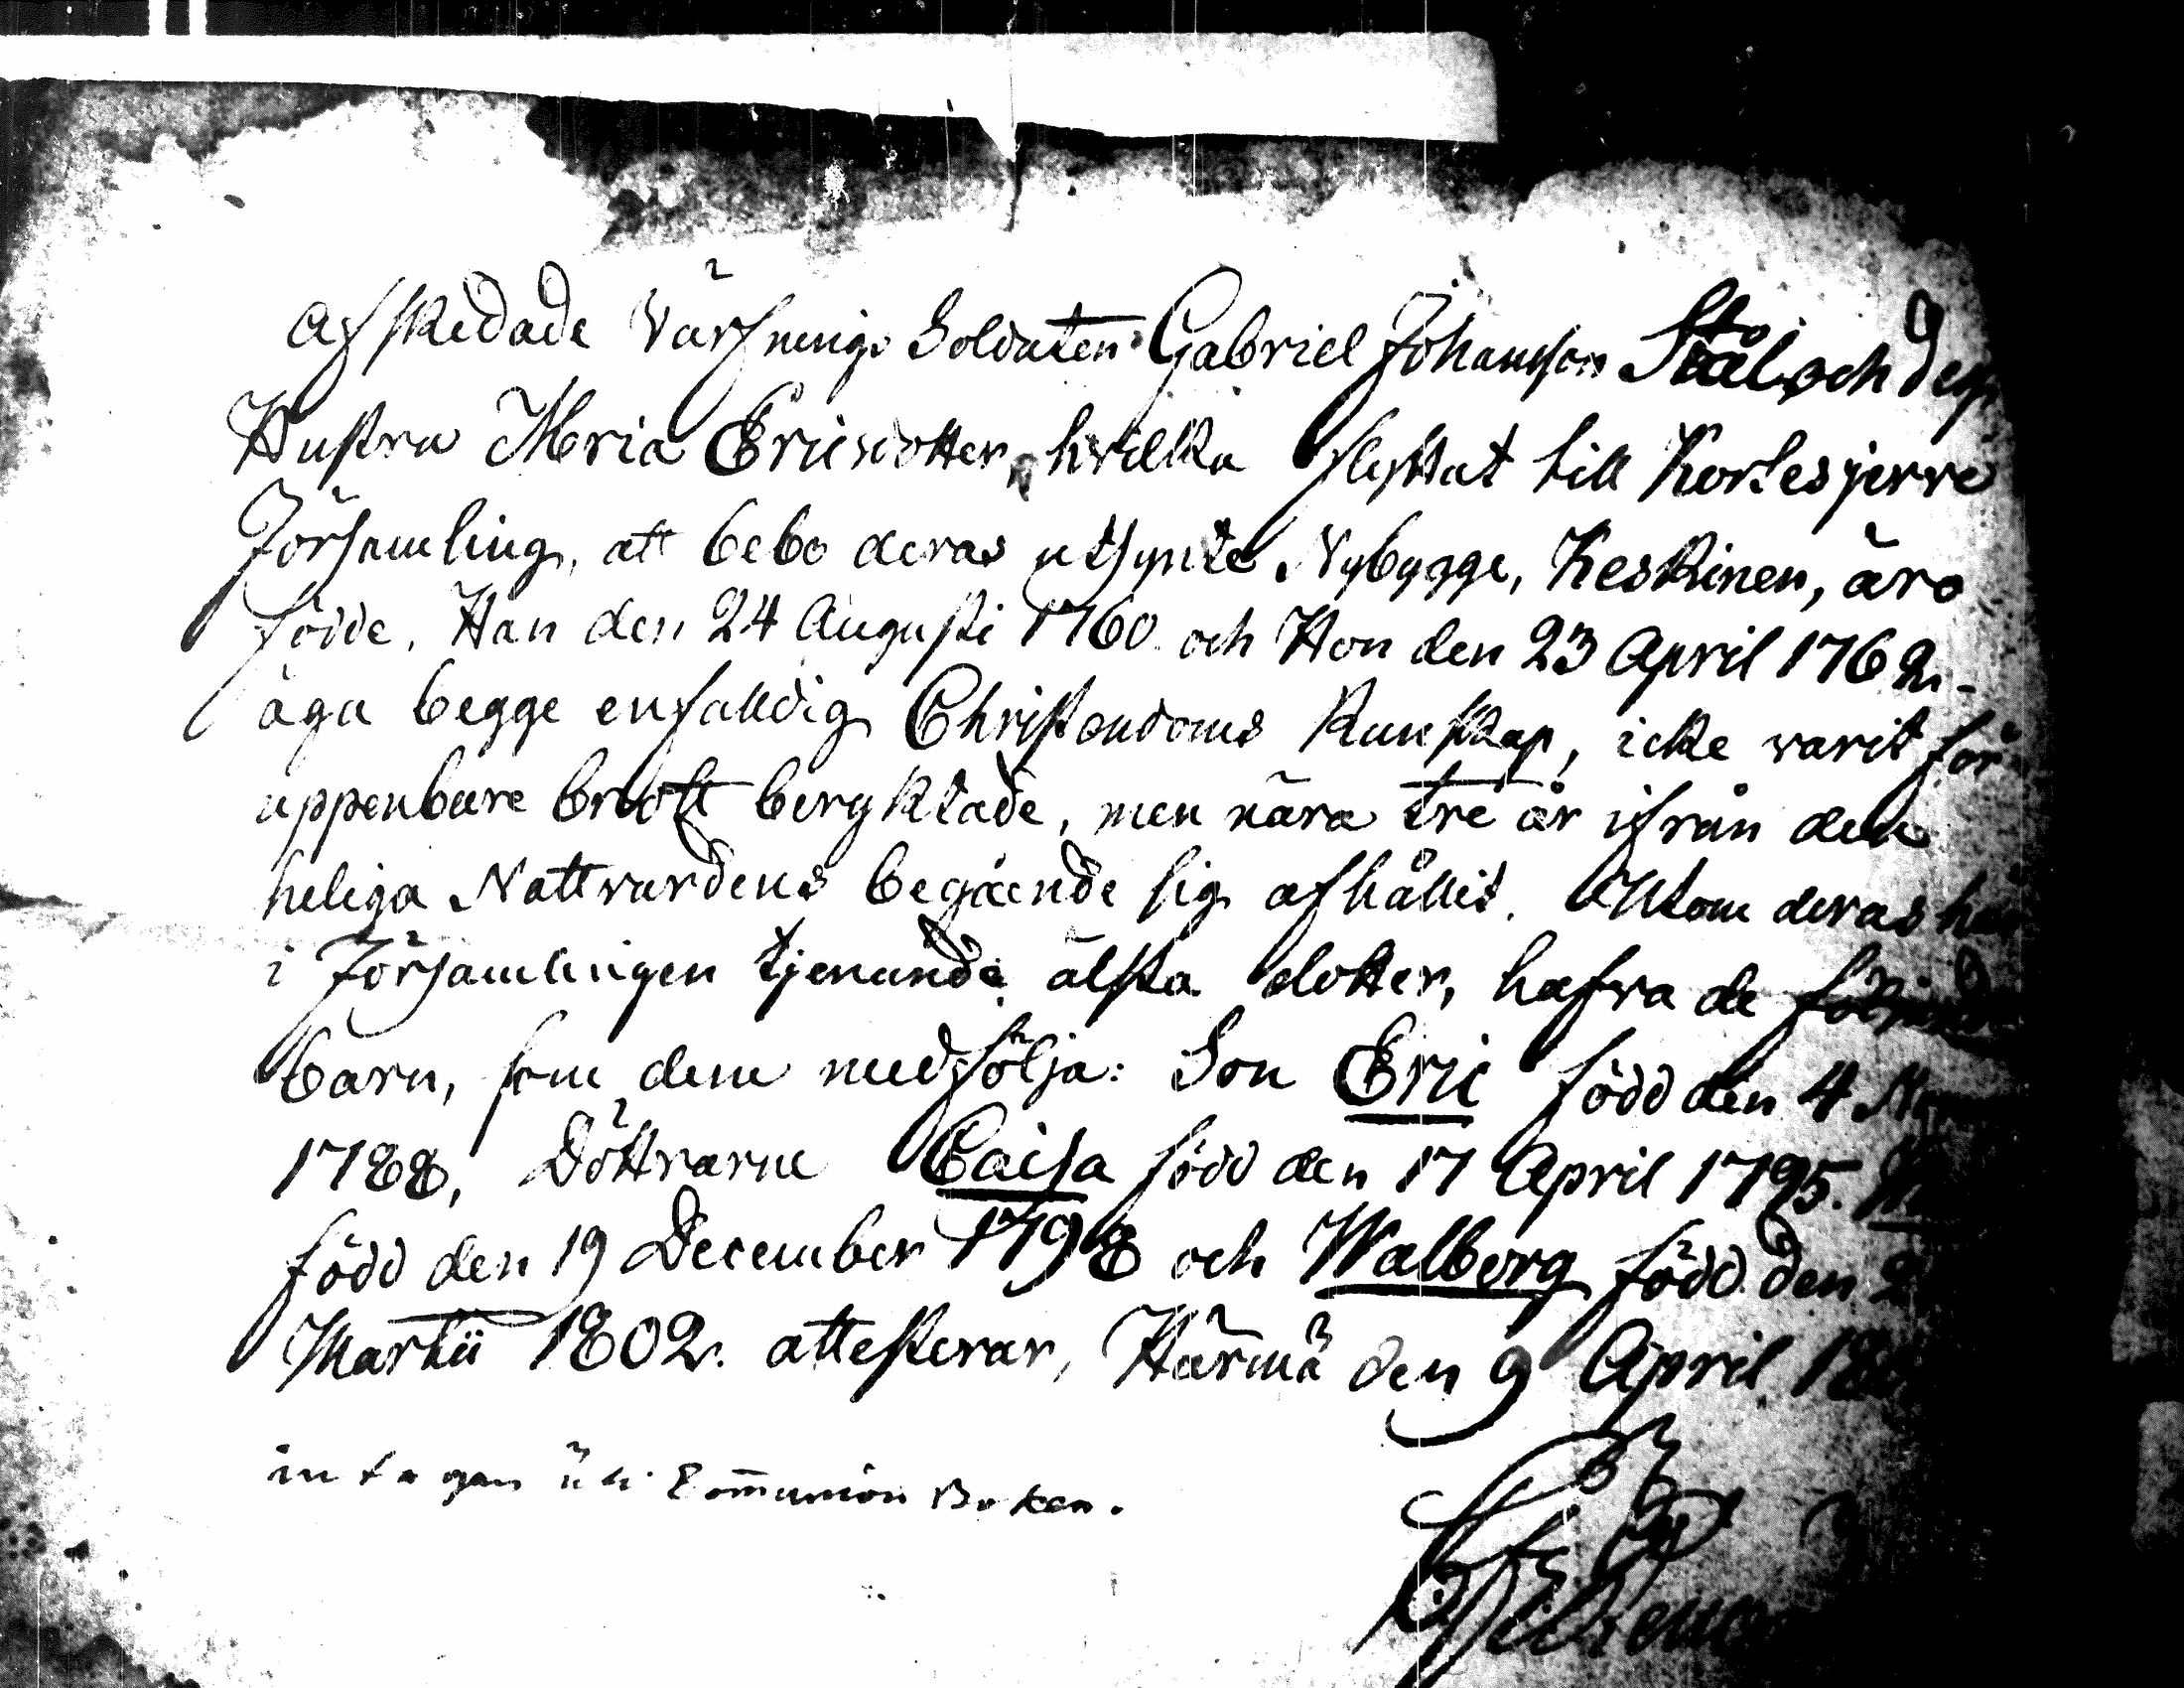 Afskedade Värfnings Soldaten Gabriel Johansson Stål och dess
Hustru Maria Ericsdotter, hvilka flyttat till Kortesjerve
Församling, att bebo deras utsynte Nybygge, Keskinen, äro
födde, Han den 24 Augusti 1760 och Hon den 23 April 1762.
äga begge enfalldig Christendoms Kunskap, icke varit för
uppenbare brott beryktade, men nära tre år ifrån den
heliga Nattvardens begående sig afhållit. Utom deras här
i Församlingen tjenande älsta dotter, hafva de följande
barn, som dem medfölja: Son Eric född den 4
1788, Döttrarne Caisa född den 17 April 1795.
född den 19 December 1798 och Walborg född den
Martii 1802. attesterar, Härmä den 9 April
intagen uti Communion Boken.